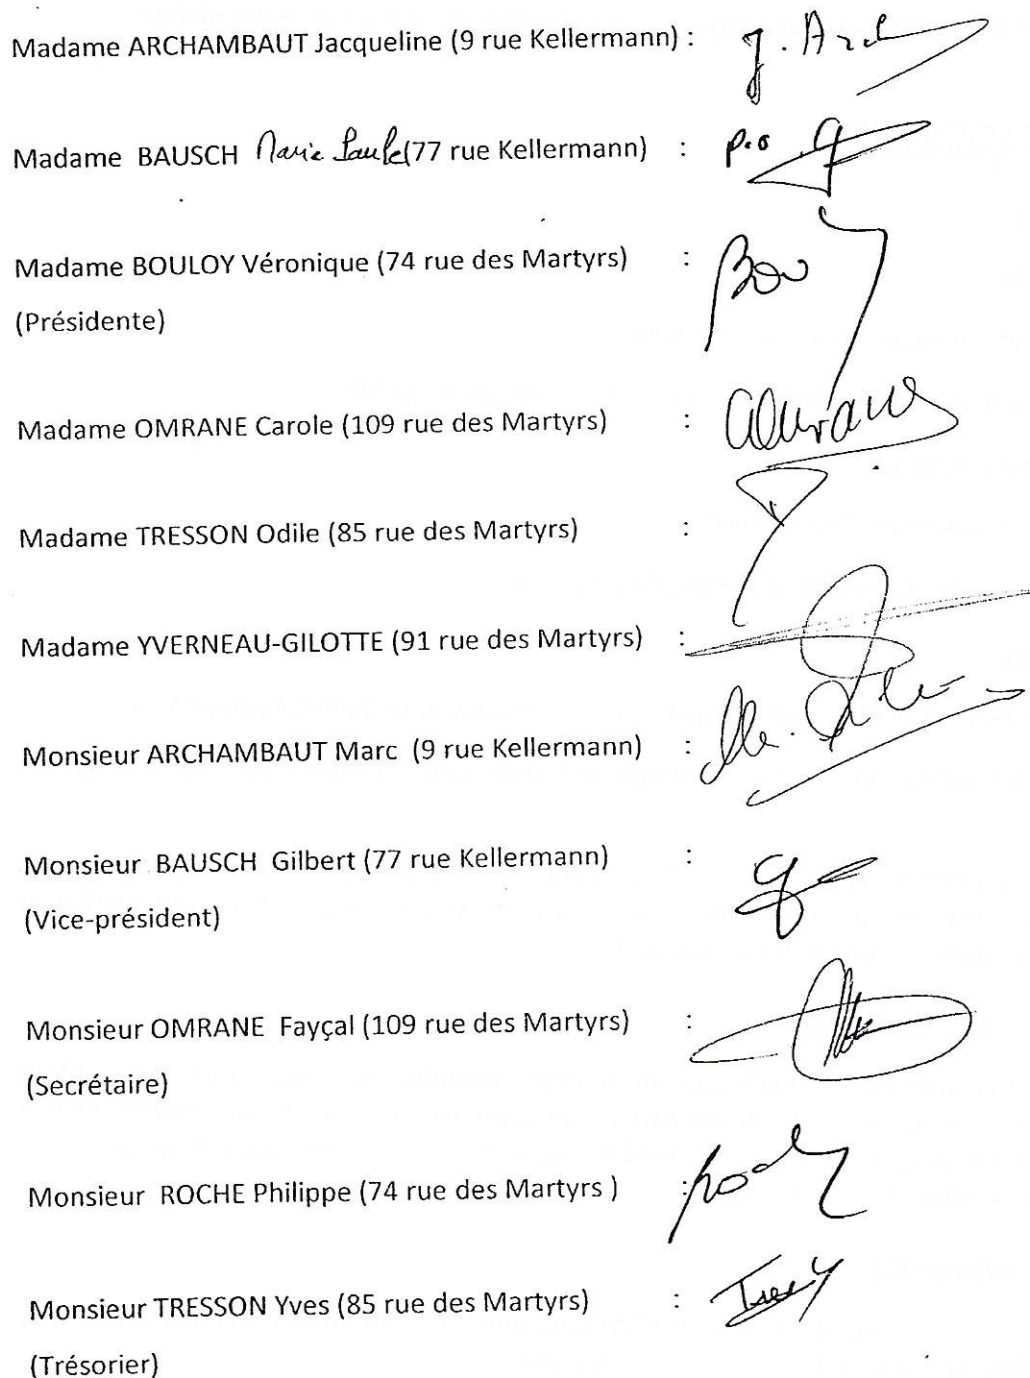 Madame ARCHAMBAUT Jacqueline (9 rue Kellermann) : J. Arch
Madame BAUSCH Marie Paule (77 rue Kellermann) : p.o
Madame BOULOY Véronique (74 rue des Martyrs) : Bou
(Présidente)
Madame OMRANE Carole (109 rue des Martyrs) :
Madame TRESSON Odile (85 rue des Martyrs) :
Madame YVERNEAU-GILOTTE (91 rue des Martyrs) :
Monsieur ARCHAMBAUT Marc (9 rue Kellermann) :
Monsieur BAUSCH Gilbert (77 rue Kellermann) :
(Vice-président)
Monsieur OMRANE Fayçal (109 rue des Martyrs) :
(Secrétaire)
Monsieur ROCHE Philippe (74 rue des Martyrs ) :
Monsieur TRESSON Yves (85 rue des Martyrs) :
(Trésorier)